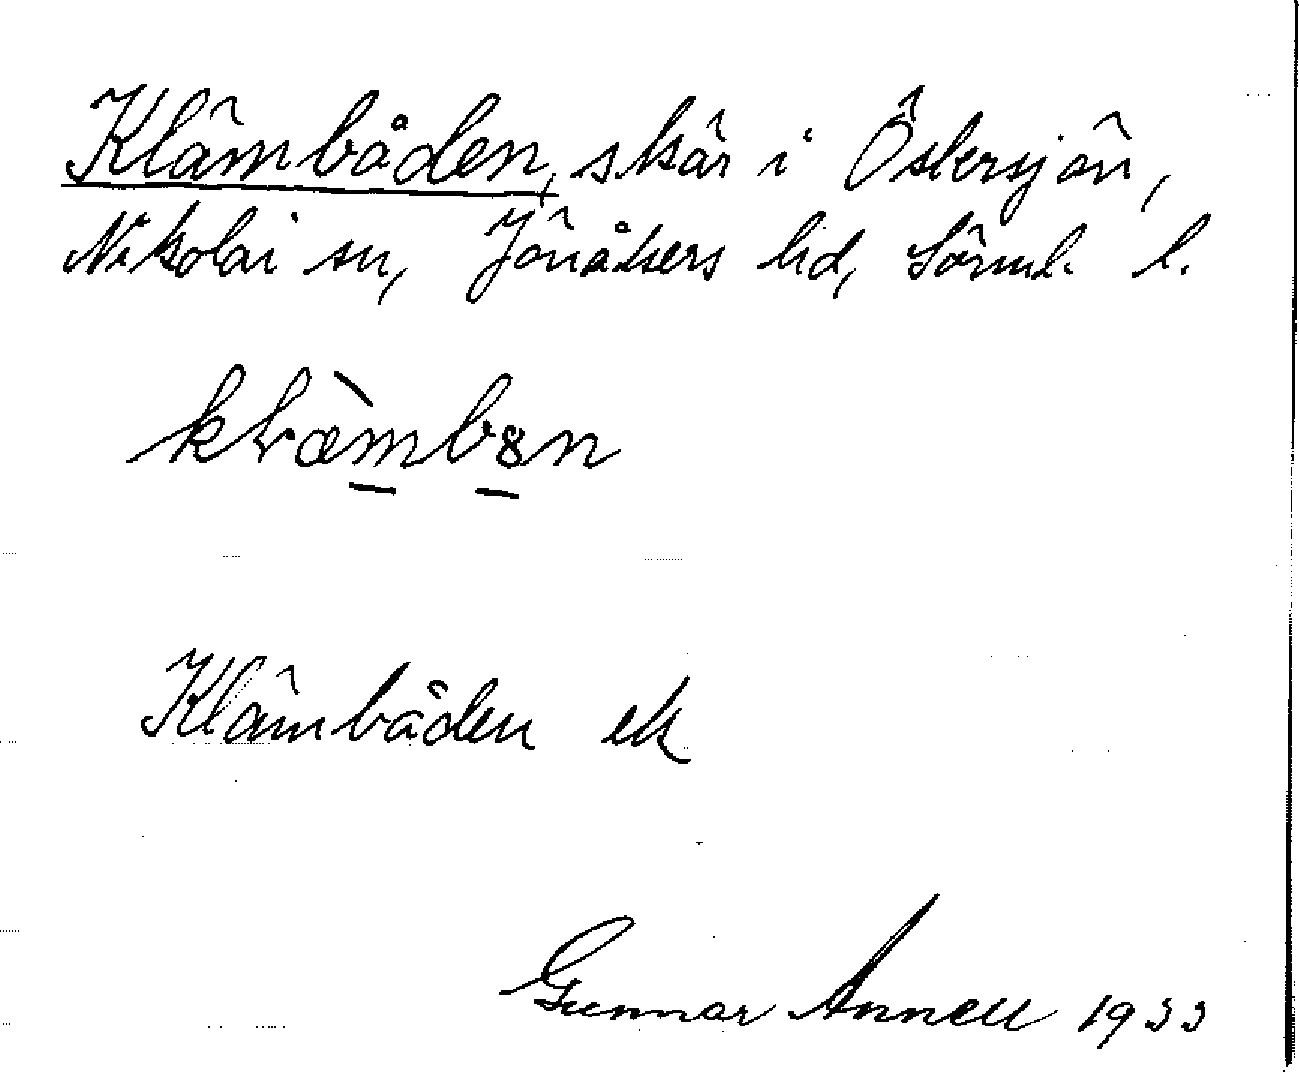 Klämbåden, skär i Östersjön,
Nikolai sn, Jönåkers hd, Söml. l.
Klämbåden ek
Gunnar Annell 1933